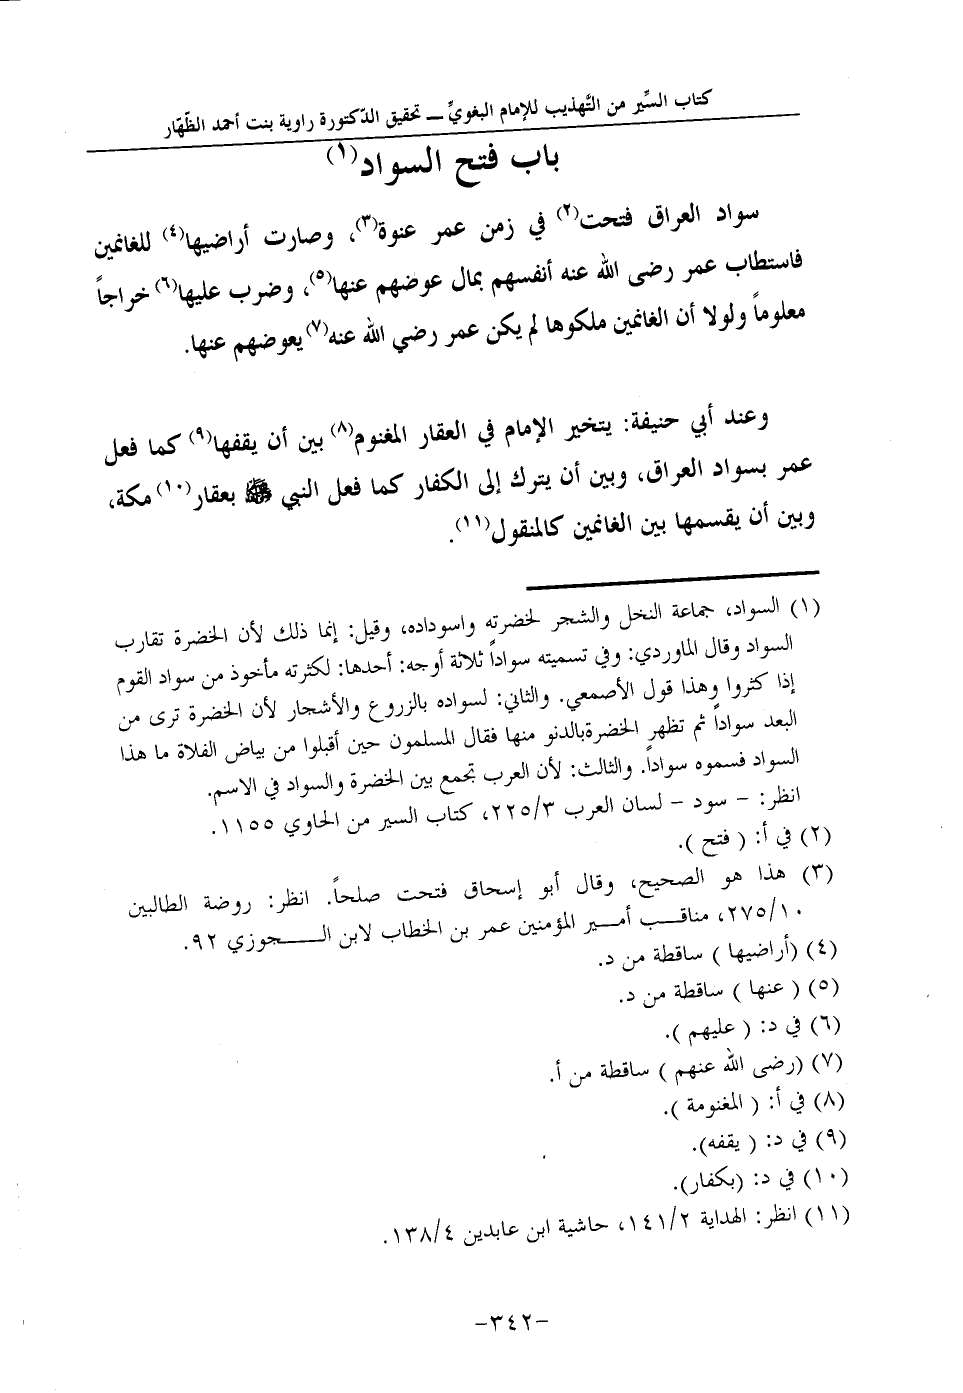 كتاب السِّير من التَّهذيب للإمام البغويِّ ــ تحقيق الدّكتورة راوية بنت أحمد الظّهّار
باب فتح السواد(١)
سواد العراق فتحت(٢) في زمن عمر عنوة(٣)، وصارت أراضيها(٤) للغانمين
فاستطاب عمر رضى الله عنه أنفسهم بمال عوضهم عنها(٥)، وضرب عليها(٦) خراجاً
معلوماً ولولا أن الغانمين ملكوها لم يكن عمر رضي الله عنه(٧) يعوضهم عنها.
وعند أبي حنيفة: يتخير الإمام في العقار المغنوم(٨) بين أن يقفها(٩) كما فعل
عمر بسواد العراق، وبين أن يترك إلى الكفار كما فعل النبي ﷺ بعقار(١٠) مكة،
وبين أن يقسمها بين الغانمين كالمنقول(١١).
(١) السواد، جماعة النخل والشجر لخضرته واسوداده، وقيل: إنما ذلك لأن الخضرة تقارب
السواد وقال الماوردي: وفي تسميته سواداً ثلاثة أوجه: أحدها: لكثرته مأخوذ من سواد القوم
إذا كثروا وهذا قول الأصمعي. والثاني: لسواده بالزروع والأشجار لأن الخضرة ترى من
البعد سواداً ثم تظهر الخضرةبالدنو منها فقال المسلمون حين أقبلوا من بياض الفلاة ما هذا
السواد فسموه سواداً. والثالث: لأن العرب تجمع بين الخضرة والسواد في الاسم.
انظر: - سود - لسان العرب ٢٢٥/٣، كتاب السير من الحاوي ١١٥٥.
(٢) في أ: ( فتح ).
(٣) هذا هو الصحيح، وقال أبو إسحاق فتحت صلحاً. انظر: روضة الطالبين
٢٧٥/١٠، مناقـــب أمـــير المؤمنين عمر بن الخطاب لابن الـــــجوزي ٩٢.
(٤) (أراضيها ) ساقطة من د.
(٥) ( عنها ) ساقطة من د.
(٦) في د: ( عليهم ).
(٧) (رضى الله عنهم ) ساقطة من أ.
(٨) في أ: ( المغنومة ).
(٩) في د: ( يقفه).
(١٠) في د: (بكفار).
(١١) انظر: الهداية ١٤١/٢، حاشية ابن عابدين ١٣٨/٤.
-٣٤٢-